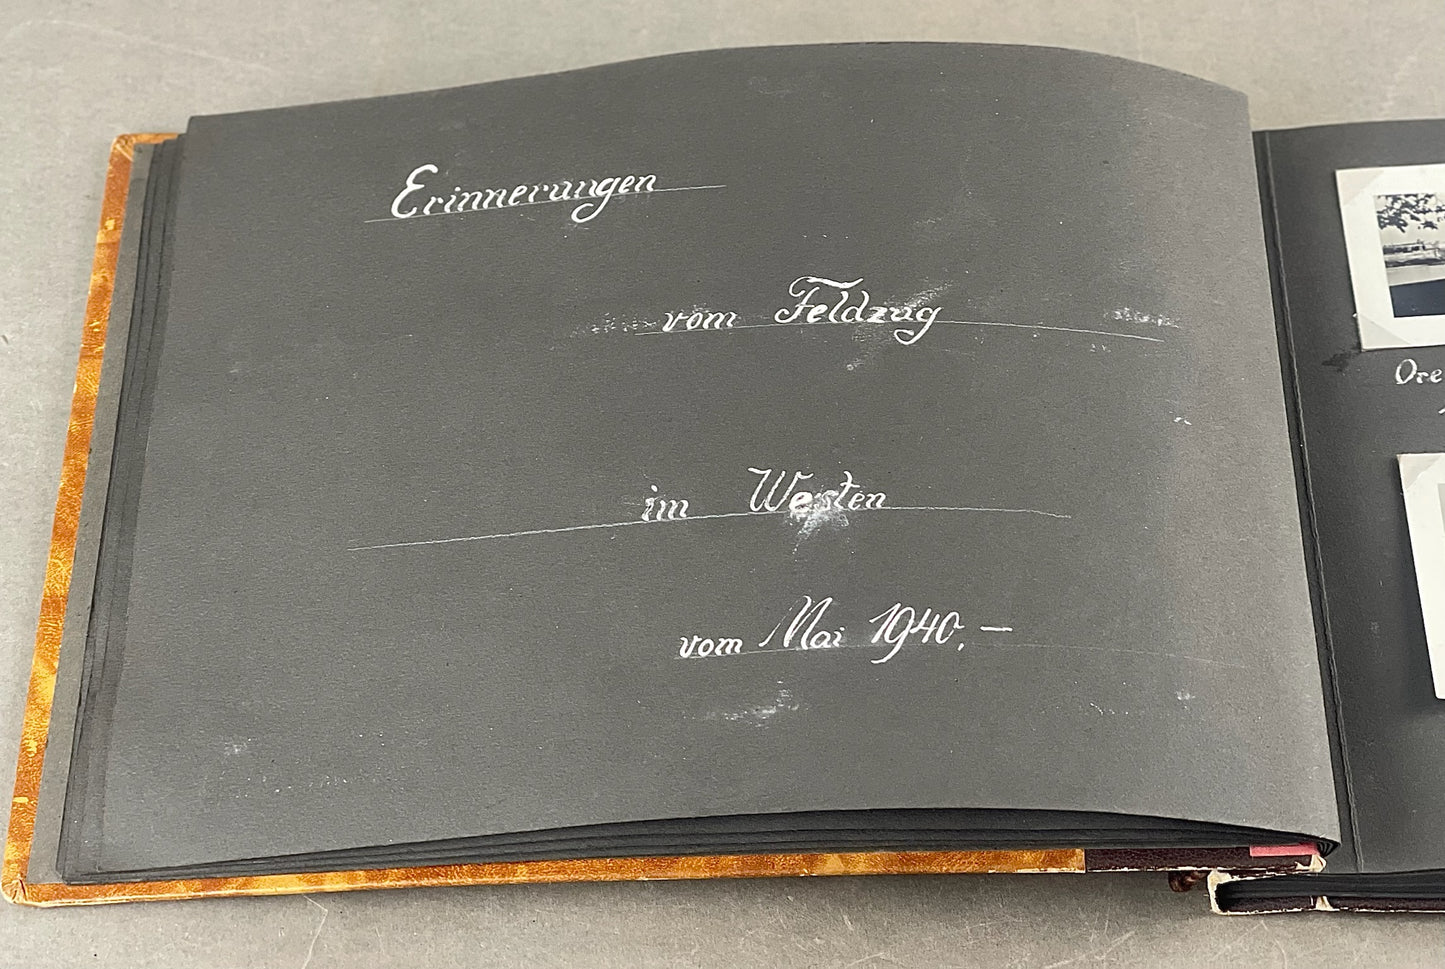 Erinnerungen
vom Feldzug
im Westen
vom Mai 1940.—